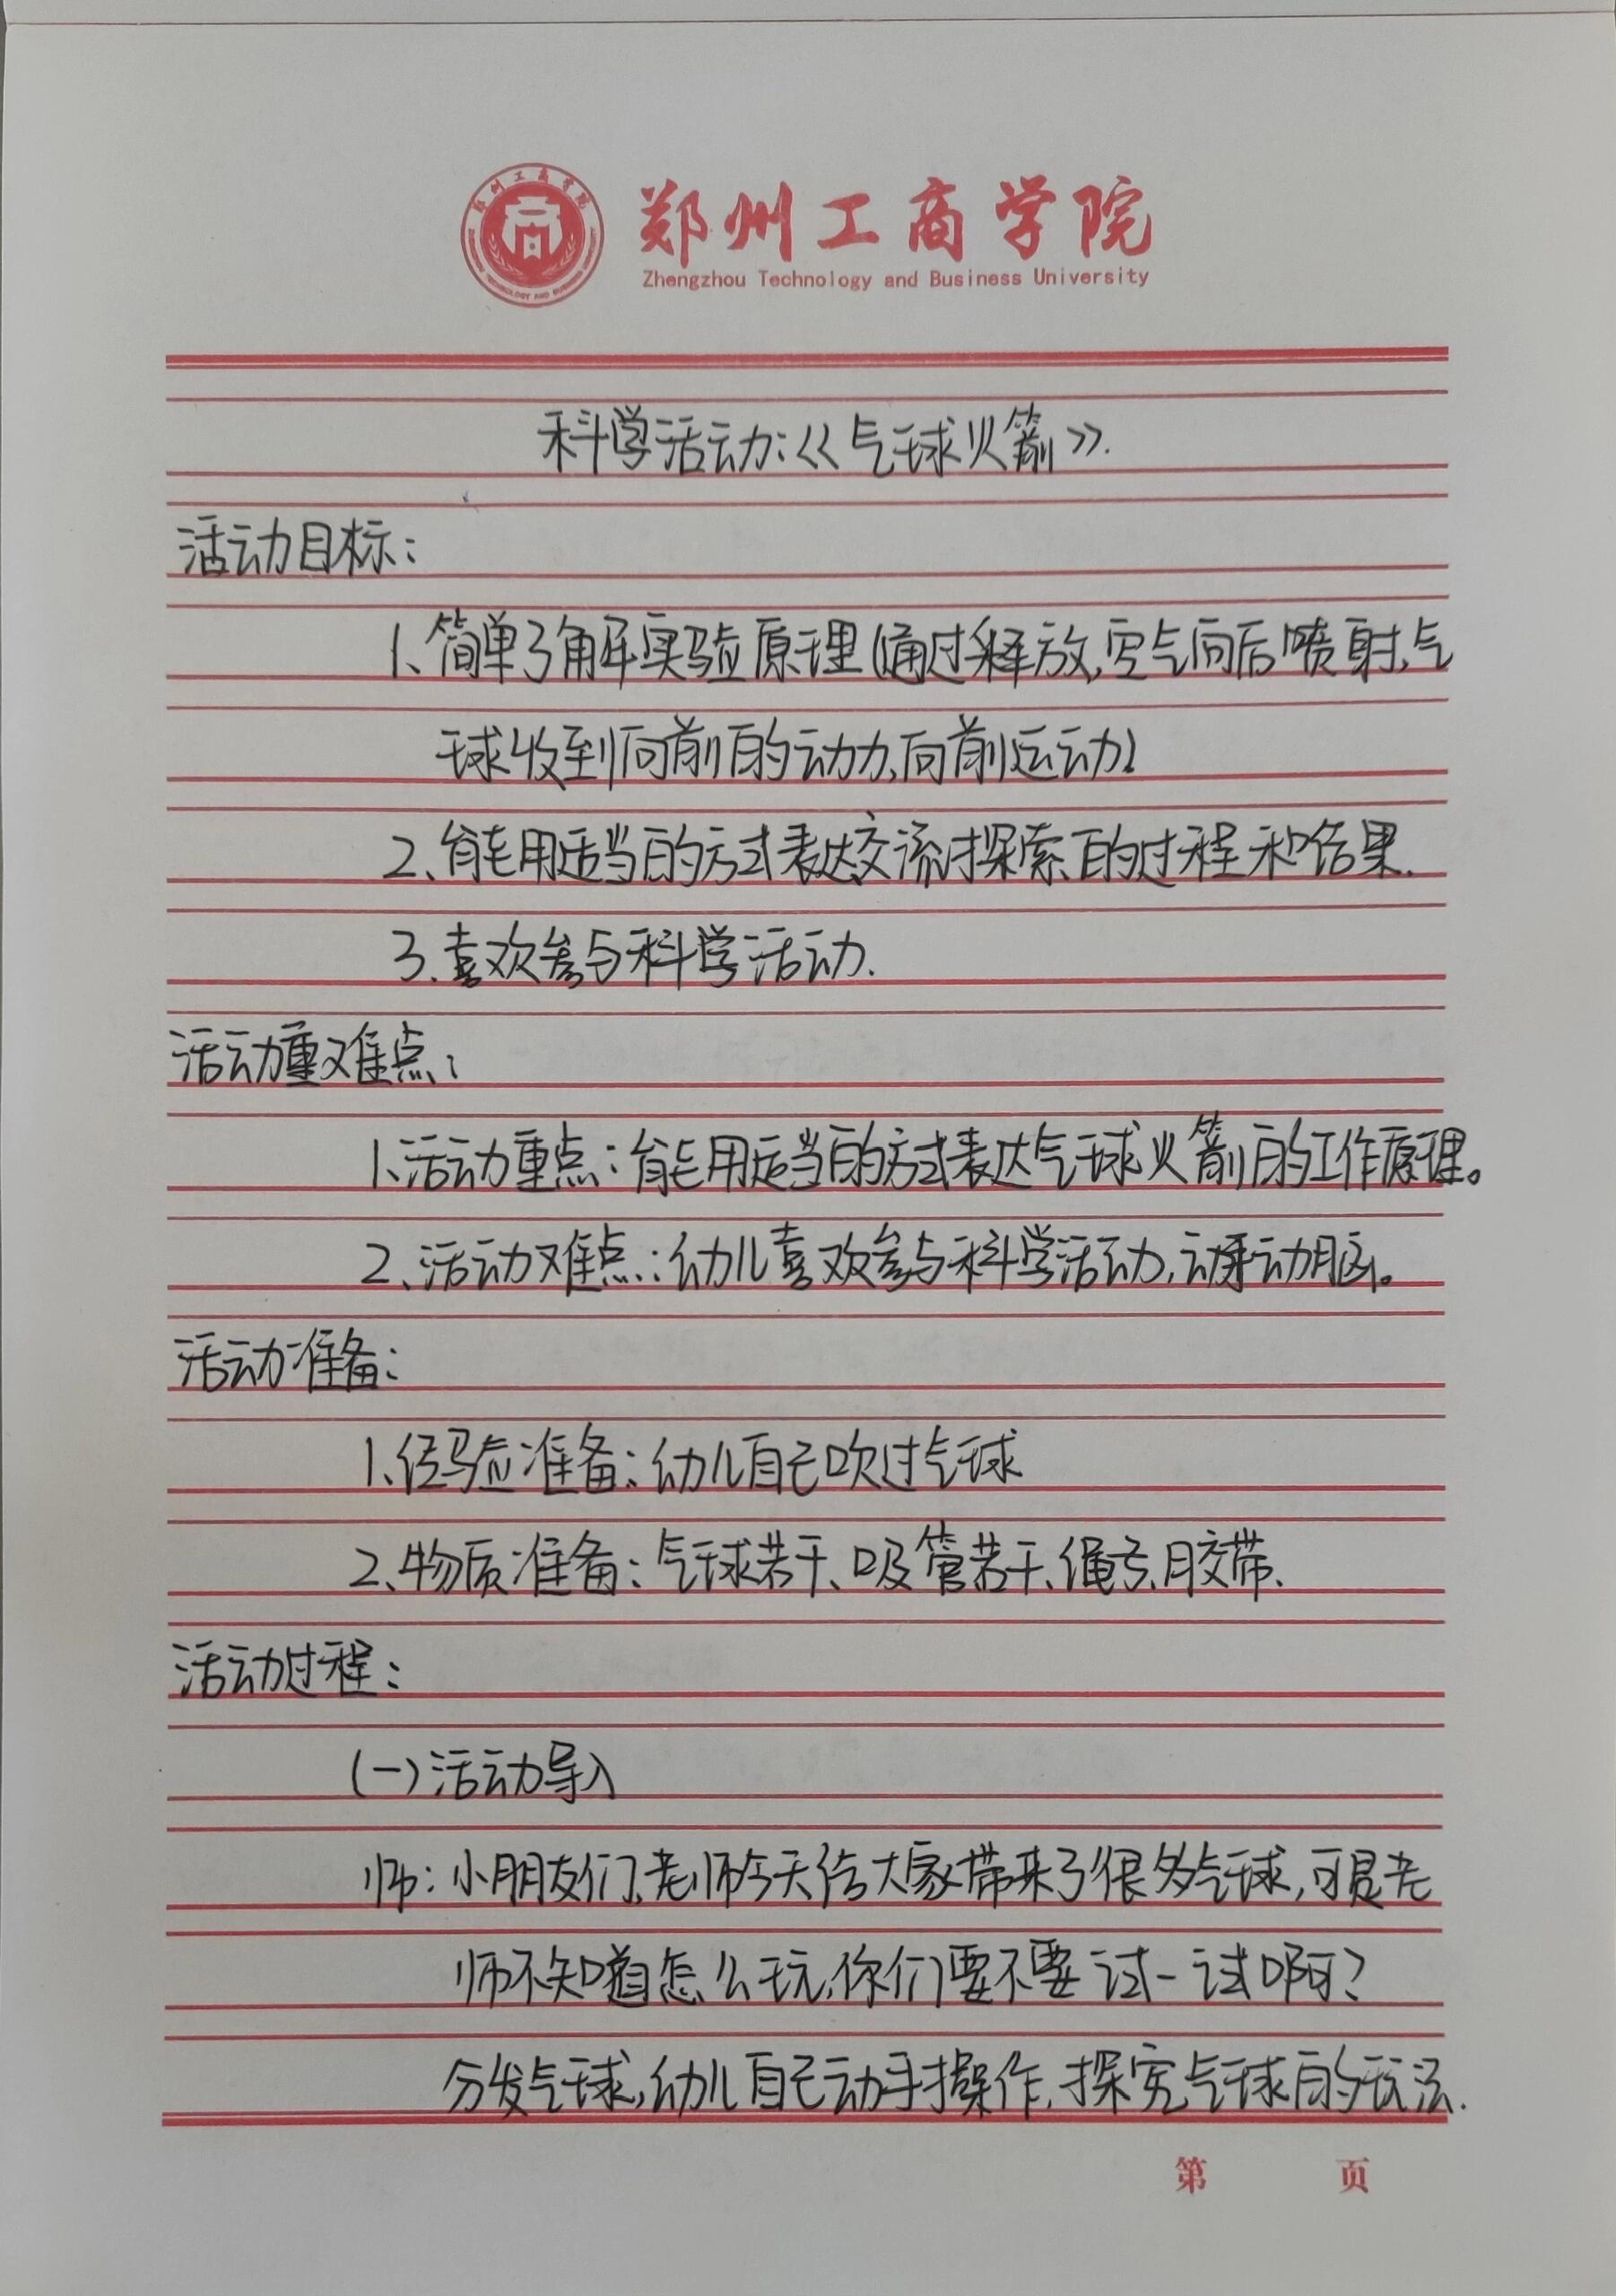 郑州工商学院
Zhengzhou Technology and Business University
科学活动:《气球火箭》.
活动目标:
1、简单了解实验原理(通过释放,空气向后喷射,气
球收到向前的动力,向前运动)
2、能用适当的方式表达交流探索的过程和结果.
3.喜欢参与科学活动.
活动重难点:
1、活动重点:能用适当的方式表达气球火箭的工作原理。
2、活动难点:幼儿喜欢参与科学活动,动手动脑。
活动准备:
1、经验准备:幼儿自己吹过气球
2、物质准备:气球若干、吸管若干、绳子、胶带.
活动过程:
(一)活动导入
师:小朋友们,老师今天给大家带来了很多气球,可是老
师不知道怎么玩,你们要不要试一试啊?
分发气球,幼儿自己动手操作,探究气球的玩法.
第 页